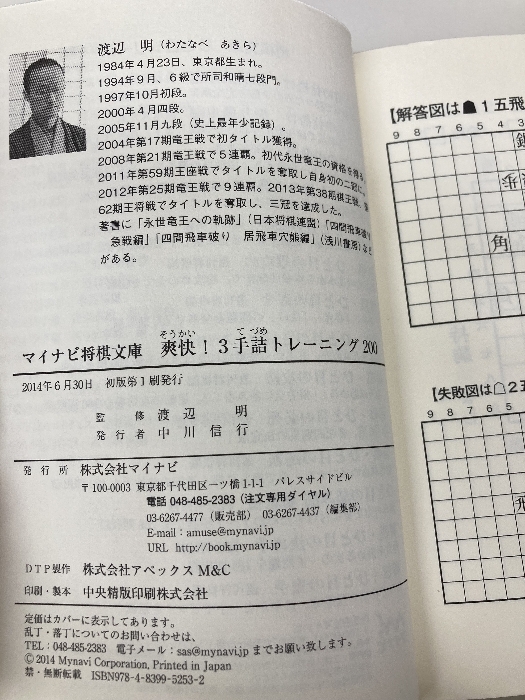 渡辺 明(わたなべ あきら)
1984年4月23日、東京都生まれ。
1994年9月、6級で所司和晴七段門。
1997年10月初段。
2000年4月四段。
2005年11月九段(史上最年少記録)。
2004年第17期竜王戦で初タイトル獲得。
2008年第21期竜王戦で5連覇。初代永世竜王の資格を得る。
2011年第59期王座戦でタイトルを奪取し自身初の二冠に。
2012年第25期竜王戦で9連覇。2013年第38期棋王戦、
62期王将戦でタイトルを奪取し、三冠を達成した。
著書に「永世竜王への軌跡」(日本将棋連盟)「四間飛車破り
急戦編」「四間飛車破り 居飛車穴熊編」(浅川書房)など
がある。
そうかい てづめ
マイナビ将棋文庫 爽快!3手詰トレーニング200
2014年6月30日 初版第1刷発行
監修 渡辺 明
発行者 中川信行
発行所 株式会社マイナビ
〒100-0003 東京都千代田区一ツ橋1-1-1 パレスサイドビル
電話 048-485-2383(注文専用ダイヤル)
03-6267-4477(販売部) 03-6267-4437(編集部)
E-mail:amuse@mynavi.jp
URL http://book.mynavi.jp
DTP製作 株式会社アペックスM&C
印刷・製本 中央精版印刷株式会社
定価はカバーに表示してあります。
乱丁・落丁についてのお問い合わせは、
TEL:048-485-2383 電子メール:sas@mynavi.jp までお願い致します。
©2014 Mynavi Corporation, Printed in Japan
禁・無断転載 ISBN978-4-8399-5253-2
【解答図は☗1五飛
9 8 7 6 5 4 3
角
【失敗図は☖2五
9 8 7 6 5 4 3